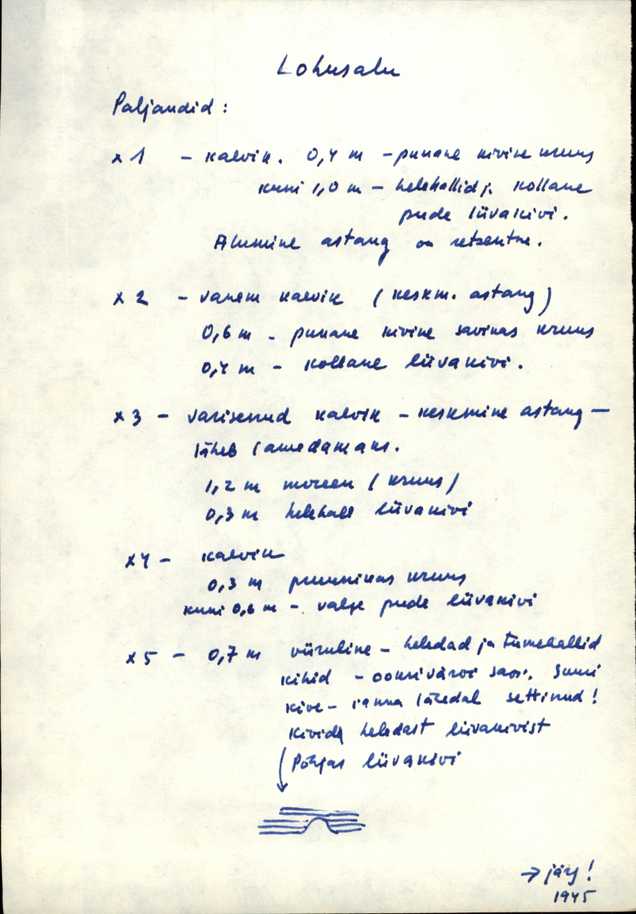 Lohusalu
Paljandid:
x 1 - kaevik. 0,4 m - punane kivine kruus
kuni 1,0 m - helehallid j. kollane
pude liivakivi.
Alumine astang on retsentne.
x 2 - vanem kaevik (keskm. astang)
0,6 m - punane kivine savikas kruus
0,4 m - kollane liivakivi.
x 3 - varisenud kaevik - keskmine astang -
läheb lamedamaks.
1,2 m moreen (kruus)
0,3 m helehall liivakivi
x 4 - kaevik
0,3 m punnikas kruus
kuni 0,6 m - valge pude liivakivi
x 5 - 0,7 m viiruline - heledad ja tumehallid
kihid - ookrivärvi savi. Suuri
kive - ranna lähedal settinud!
Kivide heledast liivakivist
Põhjas liivakivi
→ järg!
1945